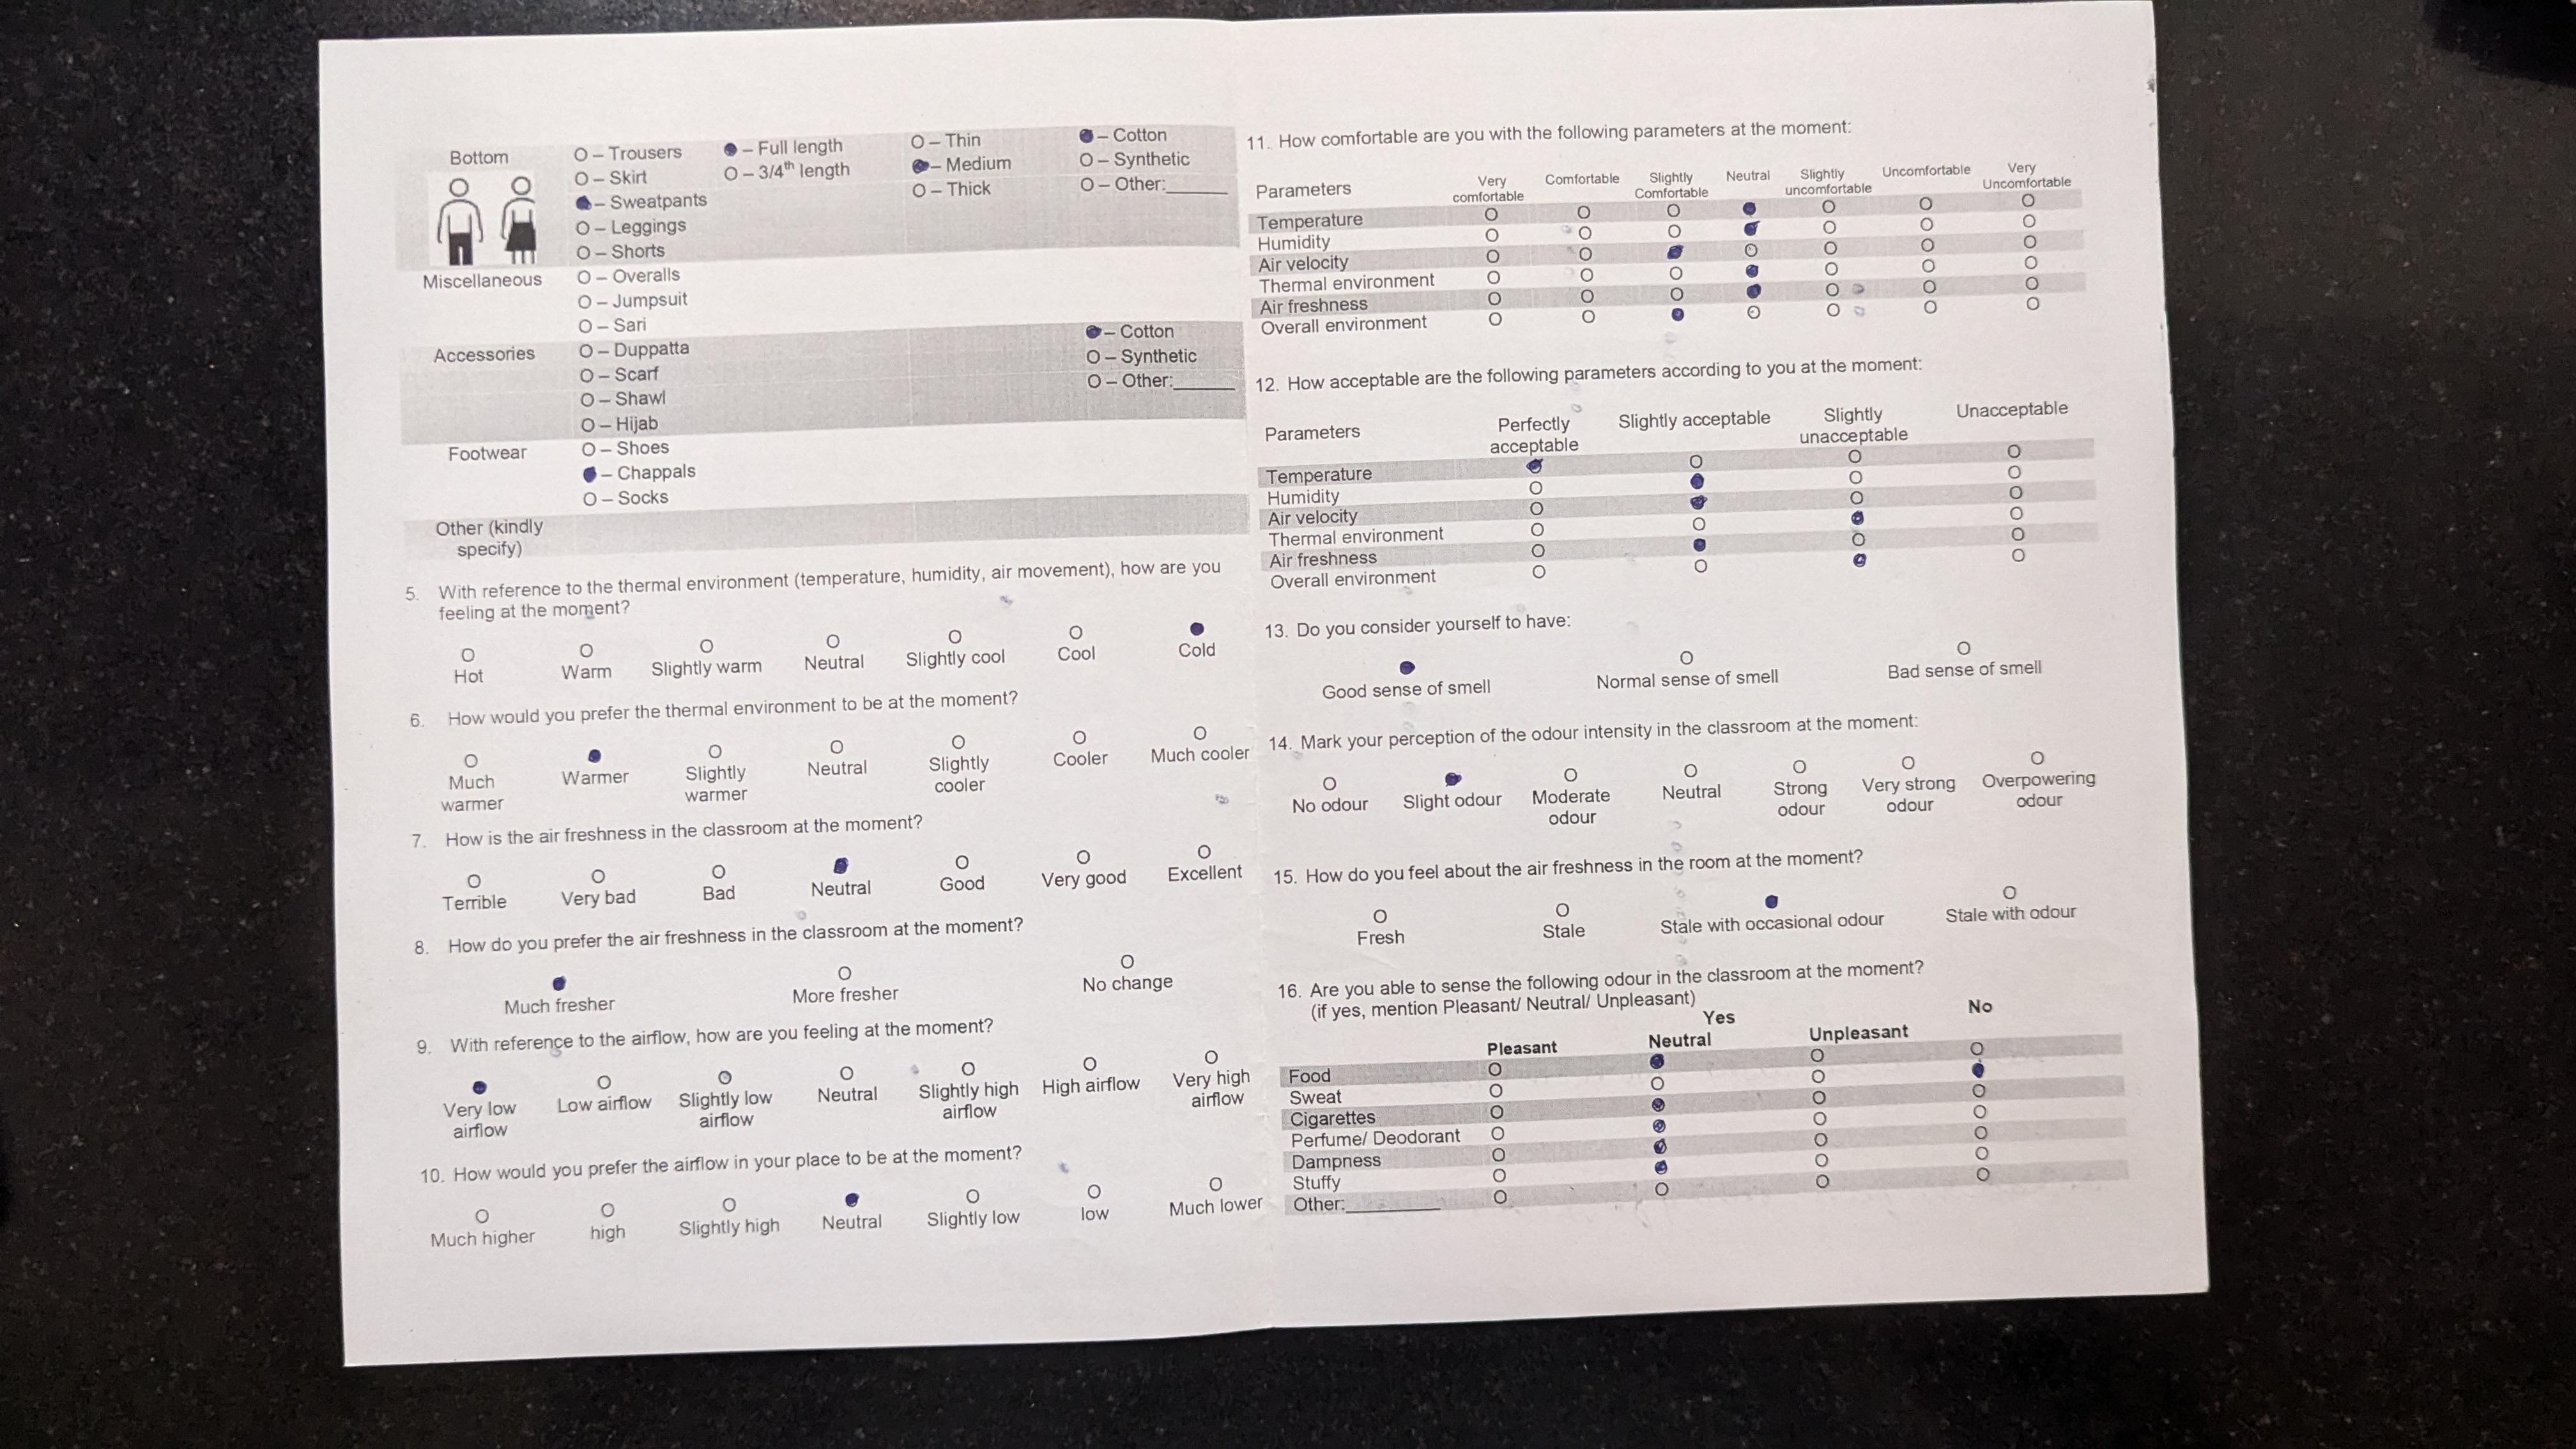 Bottom
O – Trousers
O – Skirt
● – Sweatpants
O – Leggings
O – Shorts
● – Full length
O – 3/4th length
O – Thin
● – Medium
O – Thick
● – Cotton
O – Synthetic
O – Other:______
Miscellaneous
O – Overalls
O – Jumpsuit
O – Sari
Accessories
O – Duppatta
O – Scarf
O – Shawl
O – Hijab
● – Cotton
O – Synthetic
O – Other:______
Footwear
O – Shoes
● – Chappals
O – Socks
Other (kindly
specify)
5. With reference to the thermal environment (temperature, humidity, air movement), how are you
feeling at the moment?
O O O O O O ●
Hot Warm Slightly warm Neutral Slightly cool Cool Cold
6. How would you prefer the thermal environment to be at the moment?
O ● O O O O O
Much warmer Warmer Slightly warmer Neutral Slightly cooler Cooler Much cooler
7. How is the air freshness in the classroom at the moment?
O O O ● O O O
Terrible Very bad Bad Neutral Good Very good Excellent
8. How do you prefer the air freshness in the classroom at the moment?
● O O
Much fresher More fresher No change
9. With reference to the airflow, how are you feeling at the moment?
● O O O O O O
Very low airflow Low airflow Slightly low airflow Neutral Slightly high airflow High airflow Very high airflow
10. How would you prefer the airflow in your place to be at the moment?
O O O ● O O O
Much higher high Slightly high Neutral Slightly low low Much lower
11. How comfortable are you with the following parameters at the moment:
Parameters Very comfortable Comfortable Slightly Comfortable Neutral Slightly uncomfortable Uncomfortable Very Uncomfortable
Temperature O O O ● O O O
Humidity O O O ● O O O
Air velocity O O ● O O O O
Thermal environment O O O ● O O O
Air freshness O O O ● O O O
Overall environment O O ● O O O O
12. How acceptable are the following parameters according to you at the moment:
Parameters Perfectly acceptable Slightly acceptable Slightly unacceptable Unacceptable
Temperature ● O O O
Humidity O ● O O
Air velocity O ● O O
Thermal environment O O ● O
Air freshness O ● O O
Overall environment O O ● O
13. Do you consider yourself to have:
● O O
Good sense of smell Normal sense of smell Bad sense of smell
14. Mark your perception of the odour intensity in the classroom at the moment:
O ● O O O O O
No odour Slight odour Moderate odour Neutral Strong odour Very strong odour Overpowering odour
15. How do you feel about the air freshness in the room at the moment?
O O ● O
Fresh Stale Stale with occasional odour Stale with odour
16. Are you able to sense the following odour in the classroom at the moment?
(if yes, mention Pleasant/ Neutral/ Unpleasant)
Yes No
Pleasant Neutral Unpleasant
Food O ● O O
Sweat O O O ●
Cigarettes O ● O O
Perfume/ Deodorant O ● O O
Dampness O ● O O
Stuffy O ● O O
Other:__________ O O O O